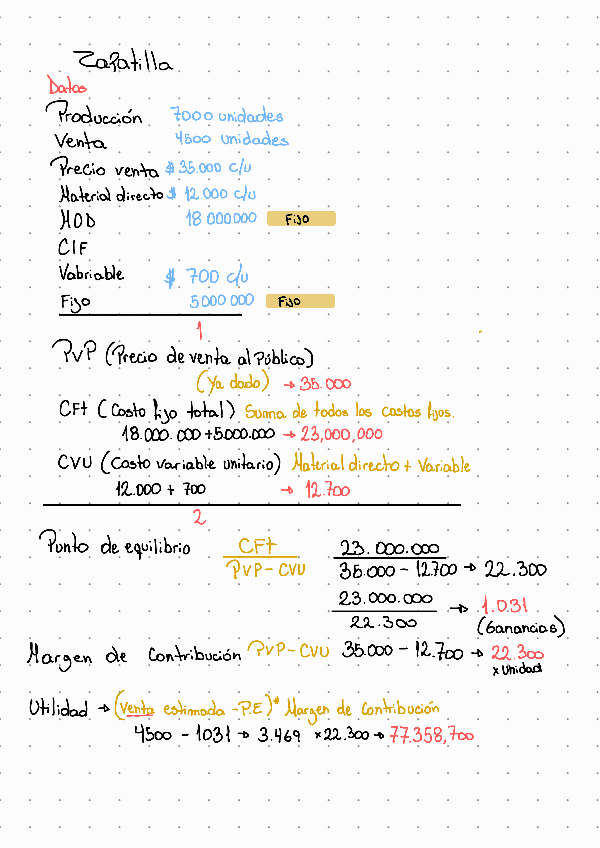 Zapatilla
Datos
Producción 7000 unidades
Venta 4500 unidades
Precio venta $ 35.000 c/u
Material directo $ 12.000 c/u
MOD 18 000000 Fijo
CIF
Vabriable $ 700 c/u
Fijo 5000 000 Fijo
1
PVP (Precio de venta al Público)
(Ya dado) → 35.000
CFt (Costo fijo total) Suma de todos los costos fijos.
18.000.000 + 5.000.000 → 23,000,000
CVU (Costo variable unitario) Material directo + Variable
12.000 + 700 → 12.700
2
Punto de equilibrio CFt 23.000.000
PVP - CVU 35.000 - 12.700 → 22.300
23.000.000 → 1.031
22.300 (Ganancias)
Margen de Contribución PVP - CVU 35.000 - 12.700 → 22.300
x Unidad
Utilidad → (Venta estimada - P.E)* Margen de Contribución
4500 - 1031 → 3.469 x 22.300 → 77.358,700